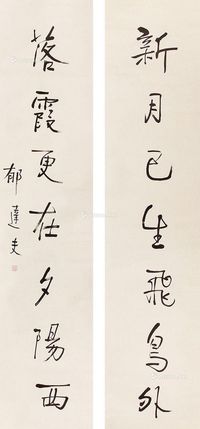 新月已生飛鳥外
落霞更在夕陽西
郁達夫